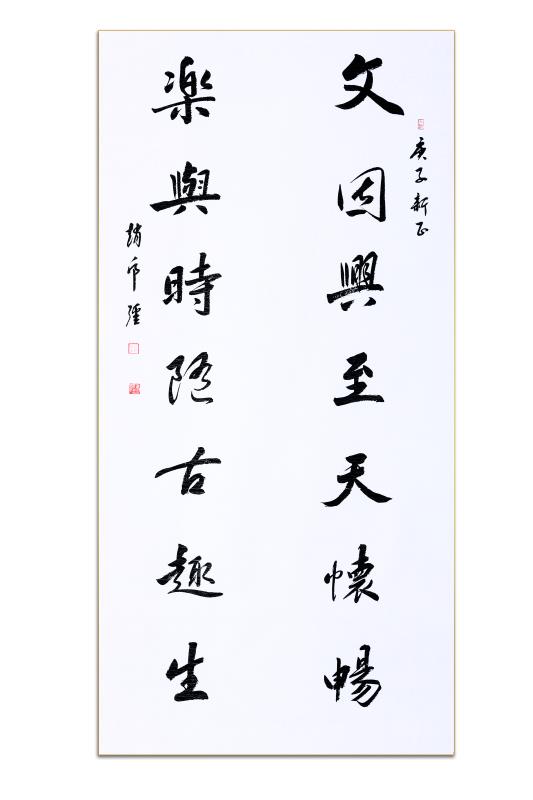 庚子新正
文因興至天懷暢
楽與時随古趣生
趙